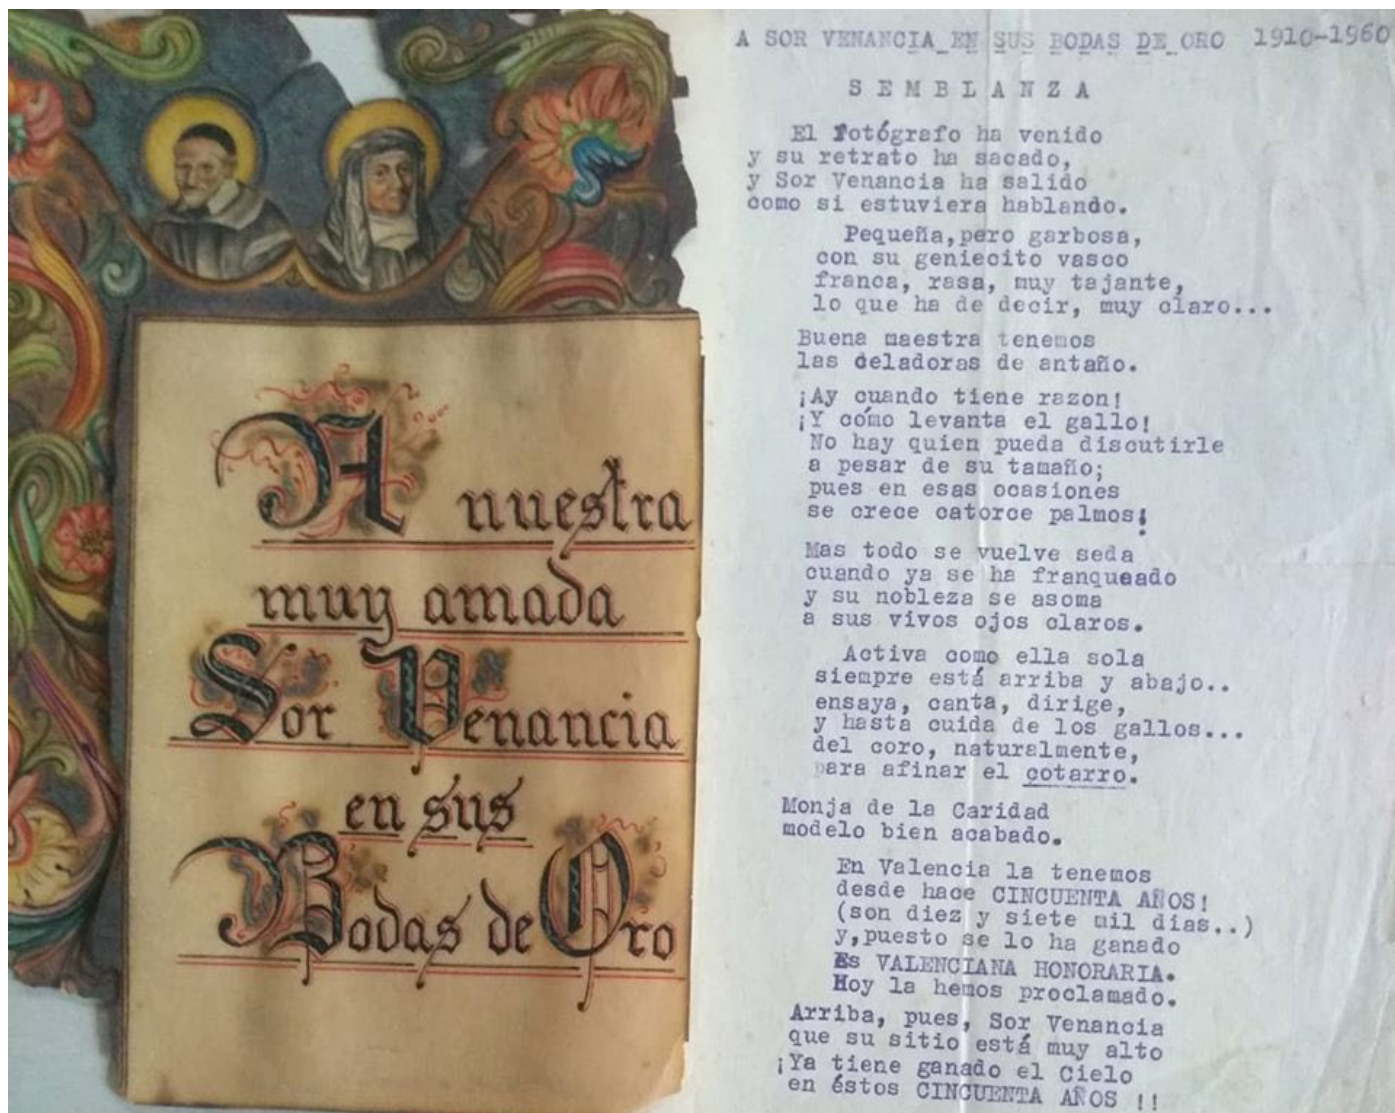 A nuestra
muy amada
Sor Venancia
en sus
Bodas de Oro
A SOR VENANCIA EN SUS BODAS DE ORO 1910-1960
SEMBLANZA
El Fotógrafo ha venido
y su retrato ha sacado,
y Sor Venancia ha salido
como si estuviera hablando.
Pequeña,pero garbosa,
con su geniecito vasco
franca, rasa, muy tajante,
lo que ha de decir, muy claro...
Buena maestra tenemos
las celadoras de antaño.
¡Ay cuando tiene razon!
¡Y cómo levanta el gallo!
No hay quien pueda discutirle
a pesar de su tamaño;
pues en esas ocasiones
se crece catorce palmos!
Mas todo se vuelve seda
cuando ya se ha franqueado
y su nobleza se asoma
a sus vivos ojos claros.
Activa como ella sola
siempre está arriba y abajo..
ensaya, canta, dirige,
y hasta cuida de los gallos...
del coro, naturalmente,
para afinar el cotarro.
Monja de la Caridad
modelo bien acabado.
En Valencia la tenemos
desde hace CINCUENTA AÑOS!
(son diez y siete mil dias..)
y,puesto se lo ha ganado
Es VALENCIANA HONORARIA.
Hoy la hemos proclamado.
Arriba, pues, Sor Venancia
que su sitio está muy alto
¡Ya tiene ganado el Cielo
en éstos CINCUENTA AÑOS !!